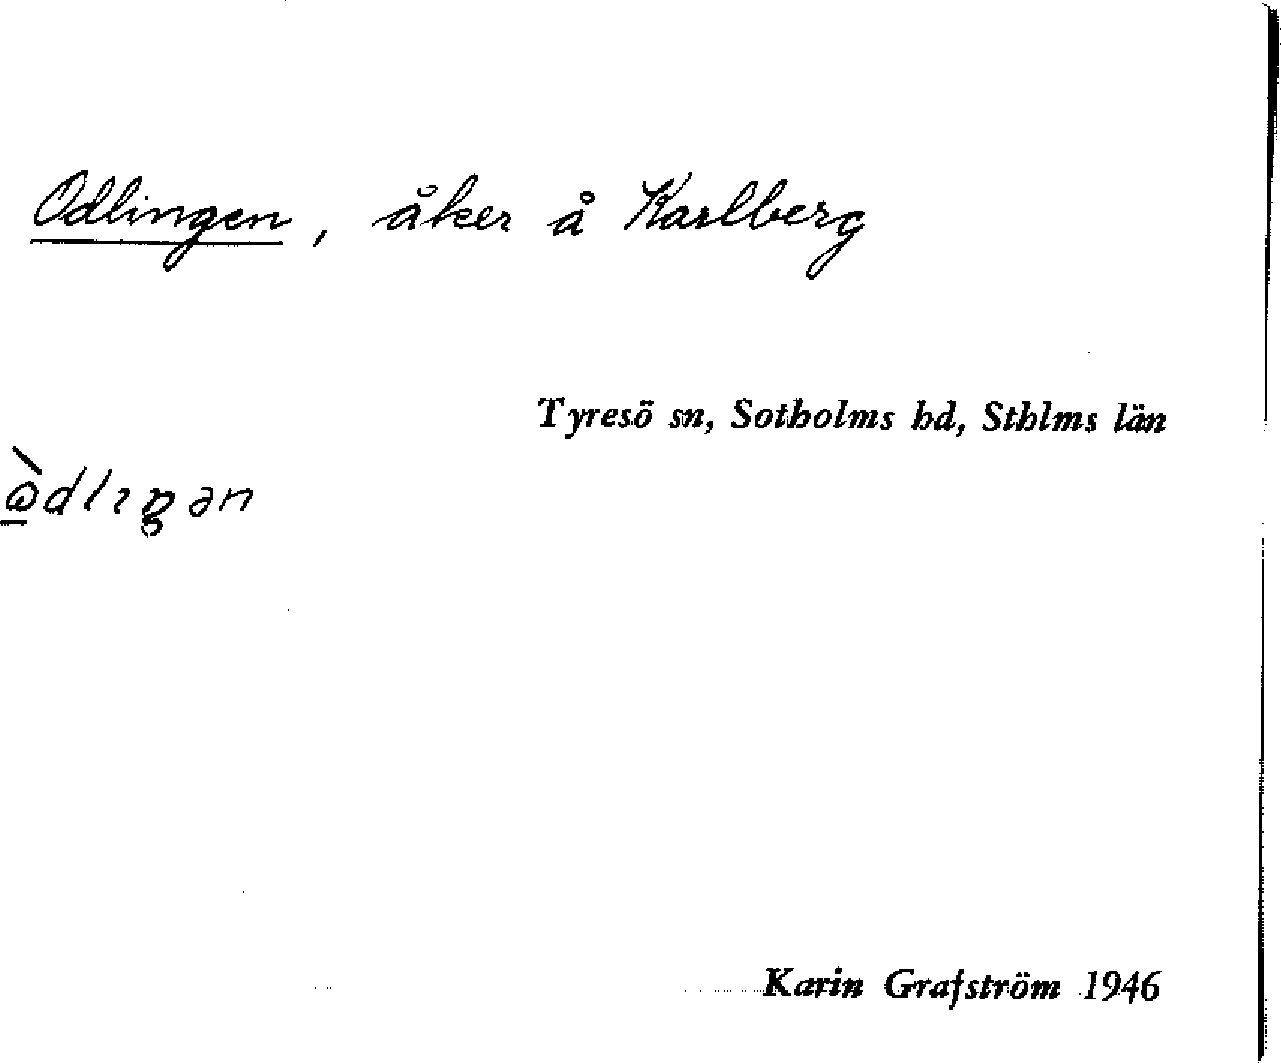 Odlingen, åker å Karlberg
Tyresö sn, Sotholms hd, Sthlms län
Karin Grafström 1946